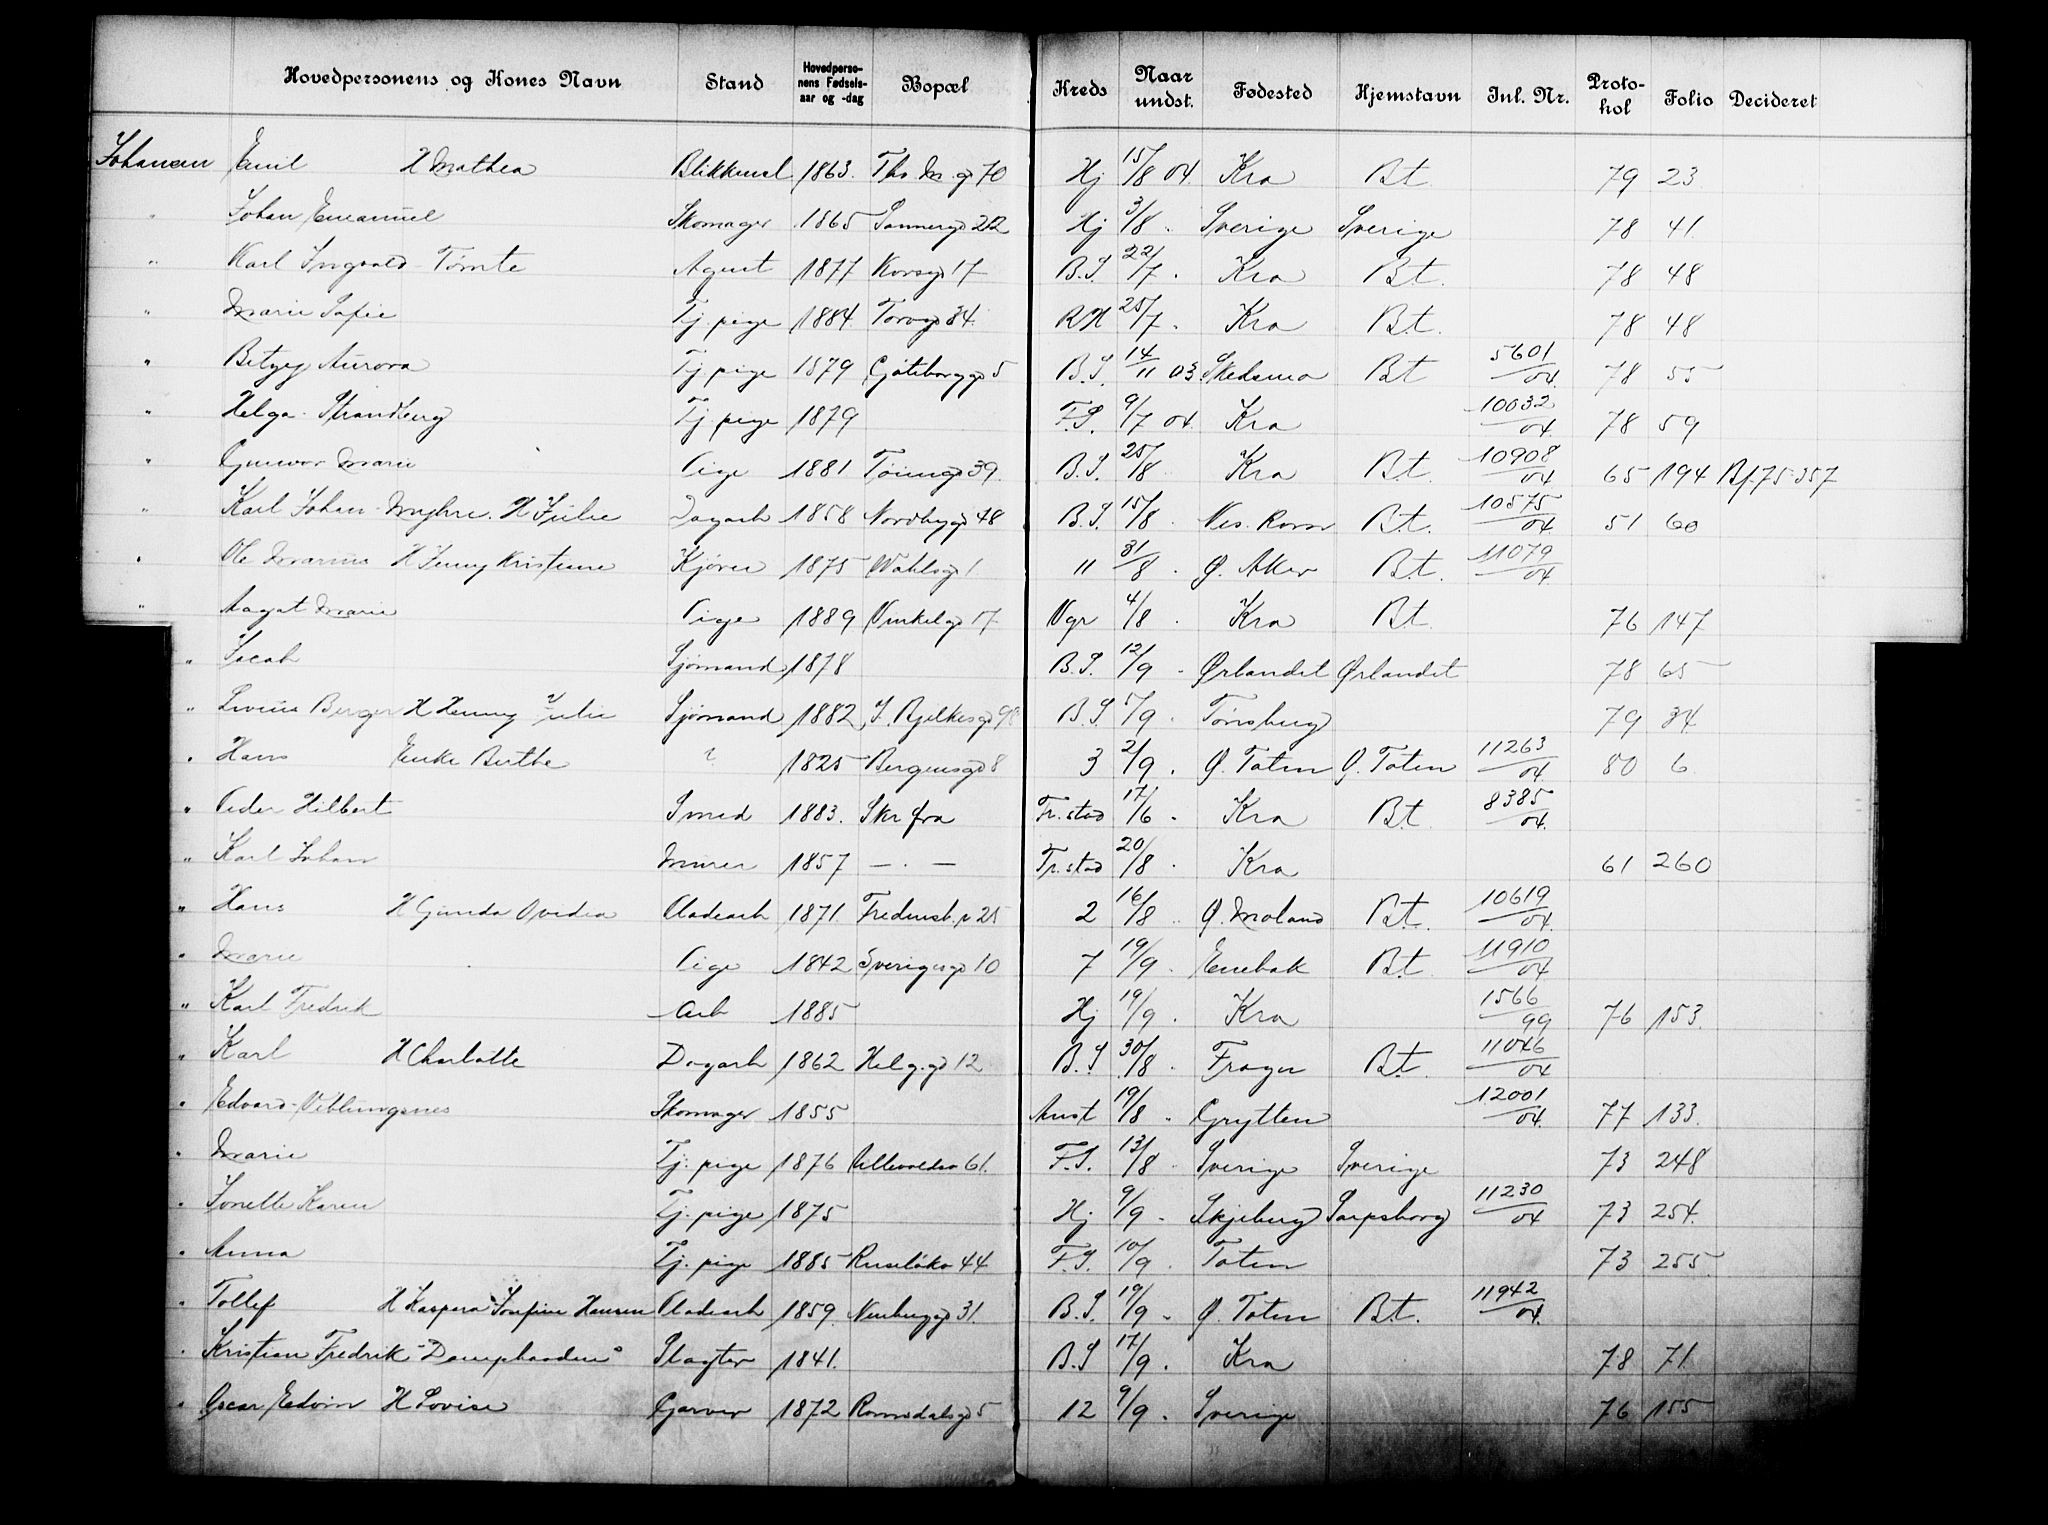 Hovedpersonens og Kones Navn Stand Hovedperso-nens Fødsels-aar og -dag Bopæl Kreds Naar undst. Fødested Hjemstavn Inl. Nr. Proto-kol Folio Decideret
Johansen Emil H Mathea Blikkensl. 1863. Ths M. gd 70 Hj 15/8 04 Kra Bt. 79 23
" Johan Emanuel Skomager 1865 Sannergd 22 Hj 3/8 . Sverige Sverige 78 41
" Karl Ingvald Tømte Agent 1877 Korsgd 17 B.S. 22/7 . Kra Bt. 78 48
" Marie Sofie Tj. pige 1884 Torvgd 34 RH 25/7 . Kra Bt. 78 48
" Betzy Aurora Tj. pige 1879 Gøteborggd 5 B.S. 14/11 03 Skedsmo Bt 5601/04 78 55
" Helga Strandberg Tj pige 1879 F.S. 9/7 04 Kra 10032/04 78 59
" Gunvor Marie Pige 1881 Tøiengd 39 B.S. 25/8 Kra Bt. 10908/04 65 194 Bf 75-357
" Karl Johan Myhre. H Julie Dagarb 1858 Nordbygd 48 B.S. 15/8 . Nes. Rom Bt. 10575/04 51 60
" Ole Marius H Jenny Kristine Kjører 1875 Wahlsgd 1 11 31/8 . Ø. Aker Bt. 11079/04
" Aagot Marie Pige 1889 Vinkelgd 17 Vgr 4/8 . Kra Bt 76 147
" Jacob Sjømand 1878 B.S. 12/9 - Ørlandet Ørlandet 78 65
" Berger H Henny Julie Sjømand 1882 J. Bjelkesgd 98 B.S /9 . Tønsberg 79 34
" Hans Enke Berthe ? 1825 Bergensgd 8 3 2/9 . Ø. Toten Ø. Toten 11263/04 80 6
" Peder Hilbert Smed 1883. Skr fra Tr. stad 17/6 . Kra Bt. 8385/04
" Karl Johan Murer 1857 — . — Tr. stad 20/8 . Kra 61 260
" Hans H Gunda Ovidia Pladearb 1871. Fredensb. v 25 2 16/8 .. Ø. Moland Bt. 10619/04
" Marie Pige 1842 Sverigesgd 10 7 19/9 . Enebak Bt. 11910/04
" Karl Fredrik Arb 1885 Hj 19/9 . Kra 1566/99 76 153.
" Karl H Charlotte Dagarb 1862 Helg.gd 12 B.S 30/8 . Frogn Bt. 11046/04
" Edvard Veblungsnes Skomager 1855 Anst 19/8 . Grytten 12001/04 77 133.
" Marie Tj. pige 1876 Ullevoldsv 61. F.S. 13/8 . Sverige Sverige 73 248
" Jonette Karen Tj. pige 1875 Hj 9/9 - Skjeberg Sarpsborg 11230/04 73 254.
" Anna Tj. pige 1885 Ruseløkv 44 F.S. 10/9 . Toten 73 255.
" Tollef H Kaspara Josefine Hansen Pladearb 1859. Nordbygd 31. B.S. 19/9 . Ø. Toten Bt. 11942/04
" Kristian Fredrik "Damphanden" Slagter 1841. B.S 17/9 . Kra 78 71
" Oscar Edvin H Lovise Garver 1872 Romsdalsgd 5 12 9/9 . Sverige 76 155